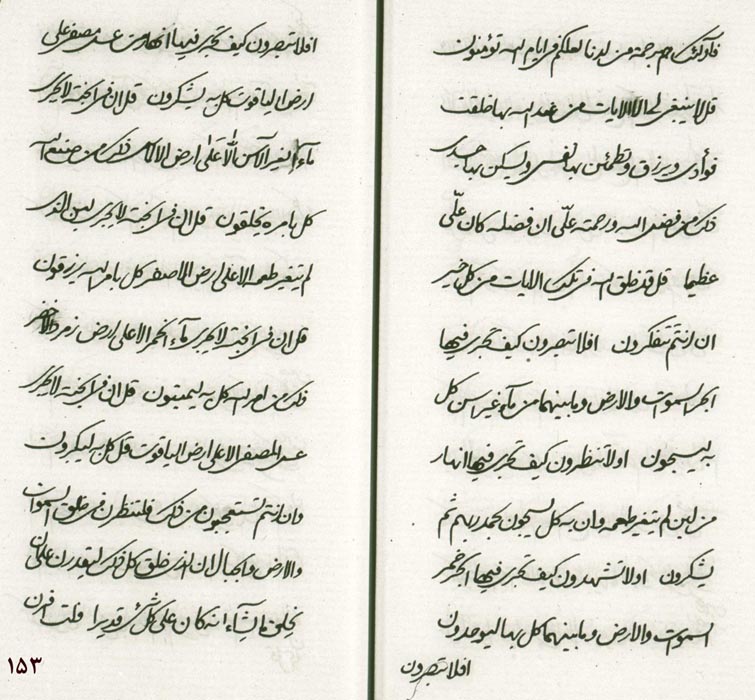 فاولئك هم برحمة من لدنا لعلكم في ايام الله تؤمنون
قل لا ينبغي لي الا الايات من عند الله بها خلقت
فؤادي ويرزق وتطمئن بها نفسي ويسكن بها جسدي
ذلك من فضل الله ورحمته علّي ان فضله كان علّي
عظيما قل قد خلق الله في تلك الايات من كل خير
ان انتم تتفكرون افلا تبصرون كيف تجري فيها
ابحر السموات والارض وما بينهما من مآء غير اسن كل
به يسبحون اولا تنظرون كيف تجري فيها انهار
من لبن لم يتغير طعمه وان به كل يسبحون بحمد ربهم ثم
يشكرون اولا تشهدون كيف تجري فيها ابحر خمر
السموات والارض وما بينهما كل بها ليوحدون
افلا تبصرون
افلا تبصرون كيف تجري فيها انهار من عسل مصفى على
ارض الياقوت كل به يشكرون قل ان في الجنة لا يجري
مآء الغير الآسن الا على ارض من صنع الله
كل بامره يخلقون قل ان في الجنة لا يجري لبن الذي
لم يتغير طعمه الا على ارض الاصفر كل بامر الله يرزقون
قل ان في الجنة لا يجري مآء الخمر الا على ارض زمرد الاخضر
ذلك من امر الله كل به ليميتون قل ان في الجنة لا يجري
عسل المصفى الا على ارض الياقوت قل كل به ليكرون
وان انتم تستعجبون من ذلك فلتنظرن في خلق السموات
والارض والجبال ان الذي خلق كل ذلك ليقدرن على ان
يخلق ما يشآء انه كان على كل شئ قديرا
١٥٣